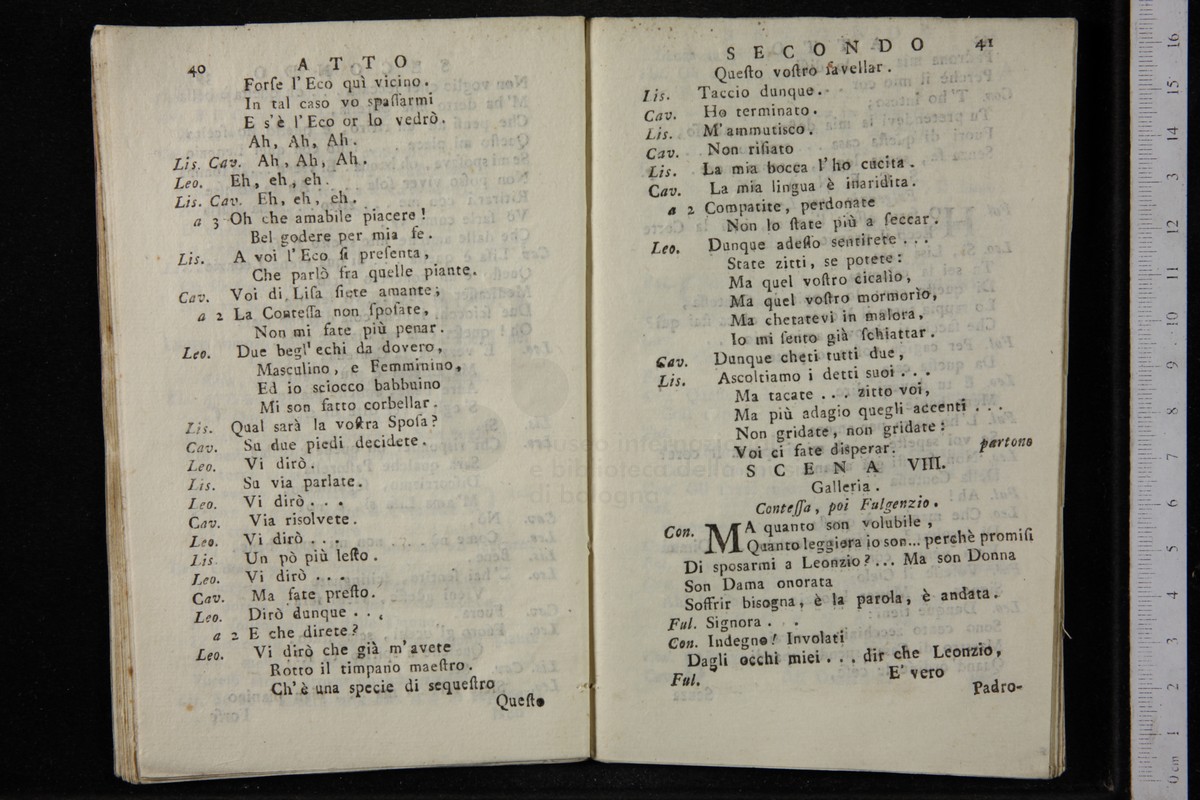 40 ATTO
Forſe l' Eco quì vicino.
In tal caso vo spaſſarmi
E s'è l'Eco or lo vedrò.
Ah, Ah, Ah.
Lis. Cav. Ah, Ah, Ah.
Leo. Eh, eh, eh.
Lis. Cav. Eh, eh, eh.
a 3 Oh che amabile piacere!
Bel godere per mia fe.
Lis. A voi l'Eco ſi preſenta,
Che parlò fra quelle piante.
Cav. Voi di Liſa ſiete amante;
a 2 La Conteſſa non ſpoſate,
Non mi fate più penar.
Leo. Due begl' echi da dovero,
Maſculino, e Femminino,
Ed io sciocco babbuino
Mi son fatto corbellar.
Lis. Qual sarà la voſtra Spoſa?
Cav. Su due piedi decidete.
Leo. Vi dirò.
Lis. Su via parlate.
Leo. Vi dirò . . .
Cav. Via risolvete.
Leo. Vi dirò . . .
Lis. Un pò più leſto.
Leo. Vi dirò . . .
Cav. Ma fate preſto.
Leo. Dirò dunque . . .
a 2 E che direte?
Leo. Vi dirò che già m'avete
Rotto il timpano maeſtro.
Ch' è una specie di sequeſtro
Queſto
SECONDO 41
Queſto voſtro favellar.
Lis. Taccio dunque.
Cav. Ho terminato.
Lis. M'ammutisco.
Cav. Non rifiato
Lis. La mia bocca l'ho cucita.
Cav. La mia lingua è inaridita.
a 2 Compatite, perdonate
Non lo ſtate più a ſeccar.
Leo. Dunque adeſſo sentirete . . .
State zitti, se potete:
Ma quel voſtro cicalìo,
Ma quel voſtro mormorìo,
Ma chetatevi in malora,
Io mi ſento già ſchiattar.
Cav. Dunque cheti tutti due,
Lis. Ascoltiamo i detti suoi . . .
Ma tacate . . . zitto voi,
Ma più adagio quegli accenti . . .
Non gridate, non gridate:
Voi ci fate disperar. partono
SCENA VIII.
Galleria.
Conteſſa, poi Fulgenzio.
Con. MA quanto son volubile,
Quanto leggiera io son... perchè promiſi
Di sposarmi a Leonzio?... Ma son Donna
Son Dama onorata
Soffrir bisogna, è la parola, è andata.
Ful. Signora . . .
Con. Indegno! Involati
Dagli occhi miei . . . dir che Leonzio,
Ful. E' vero
Padro-
museo internazionale
e biblioteca della musica
di bologna
0 cm 1 2 3 4 5 6 7 8 9 10 11 12 13 14 15 16